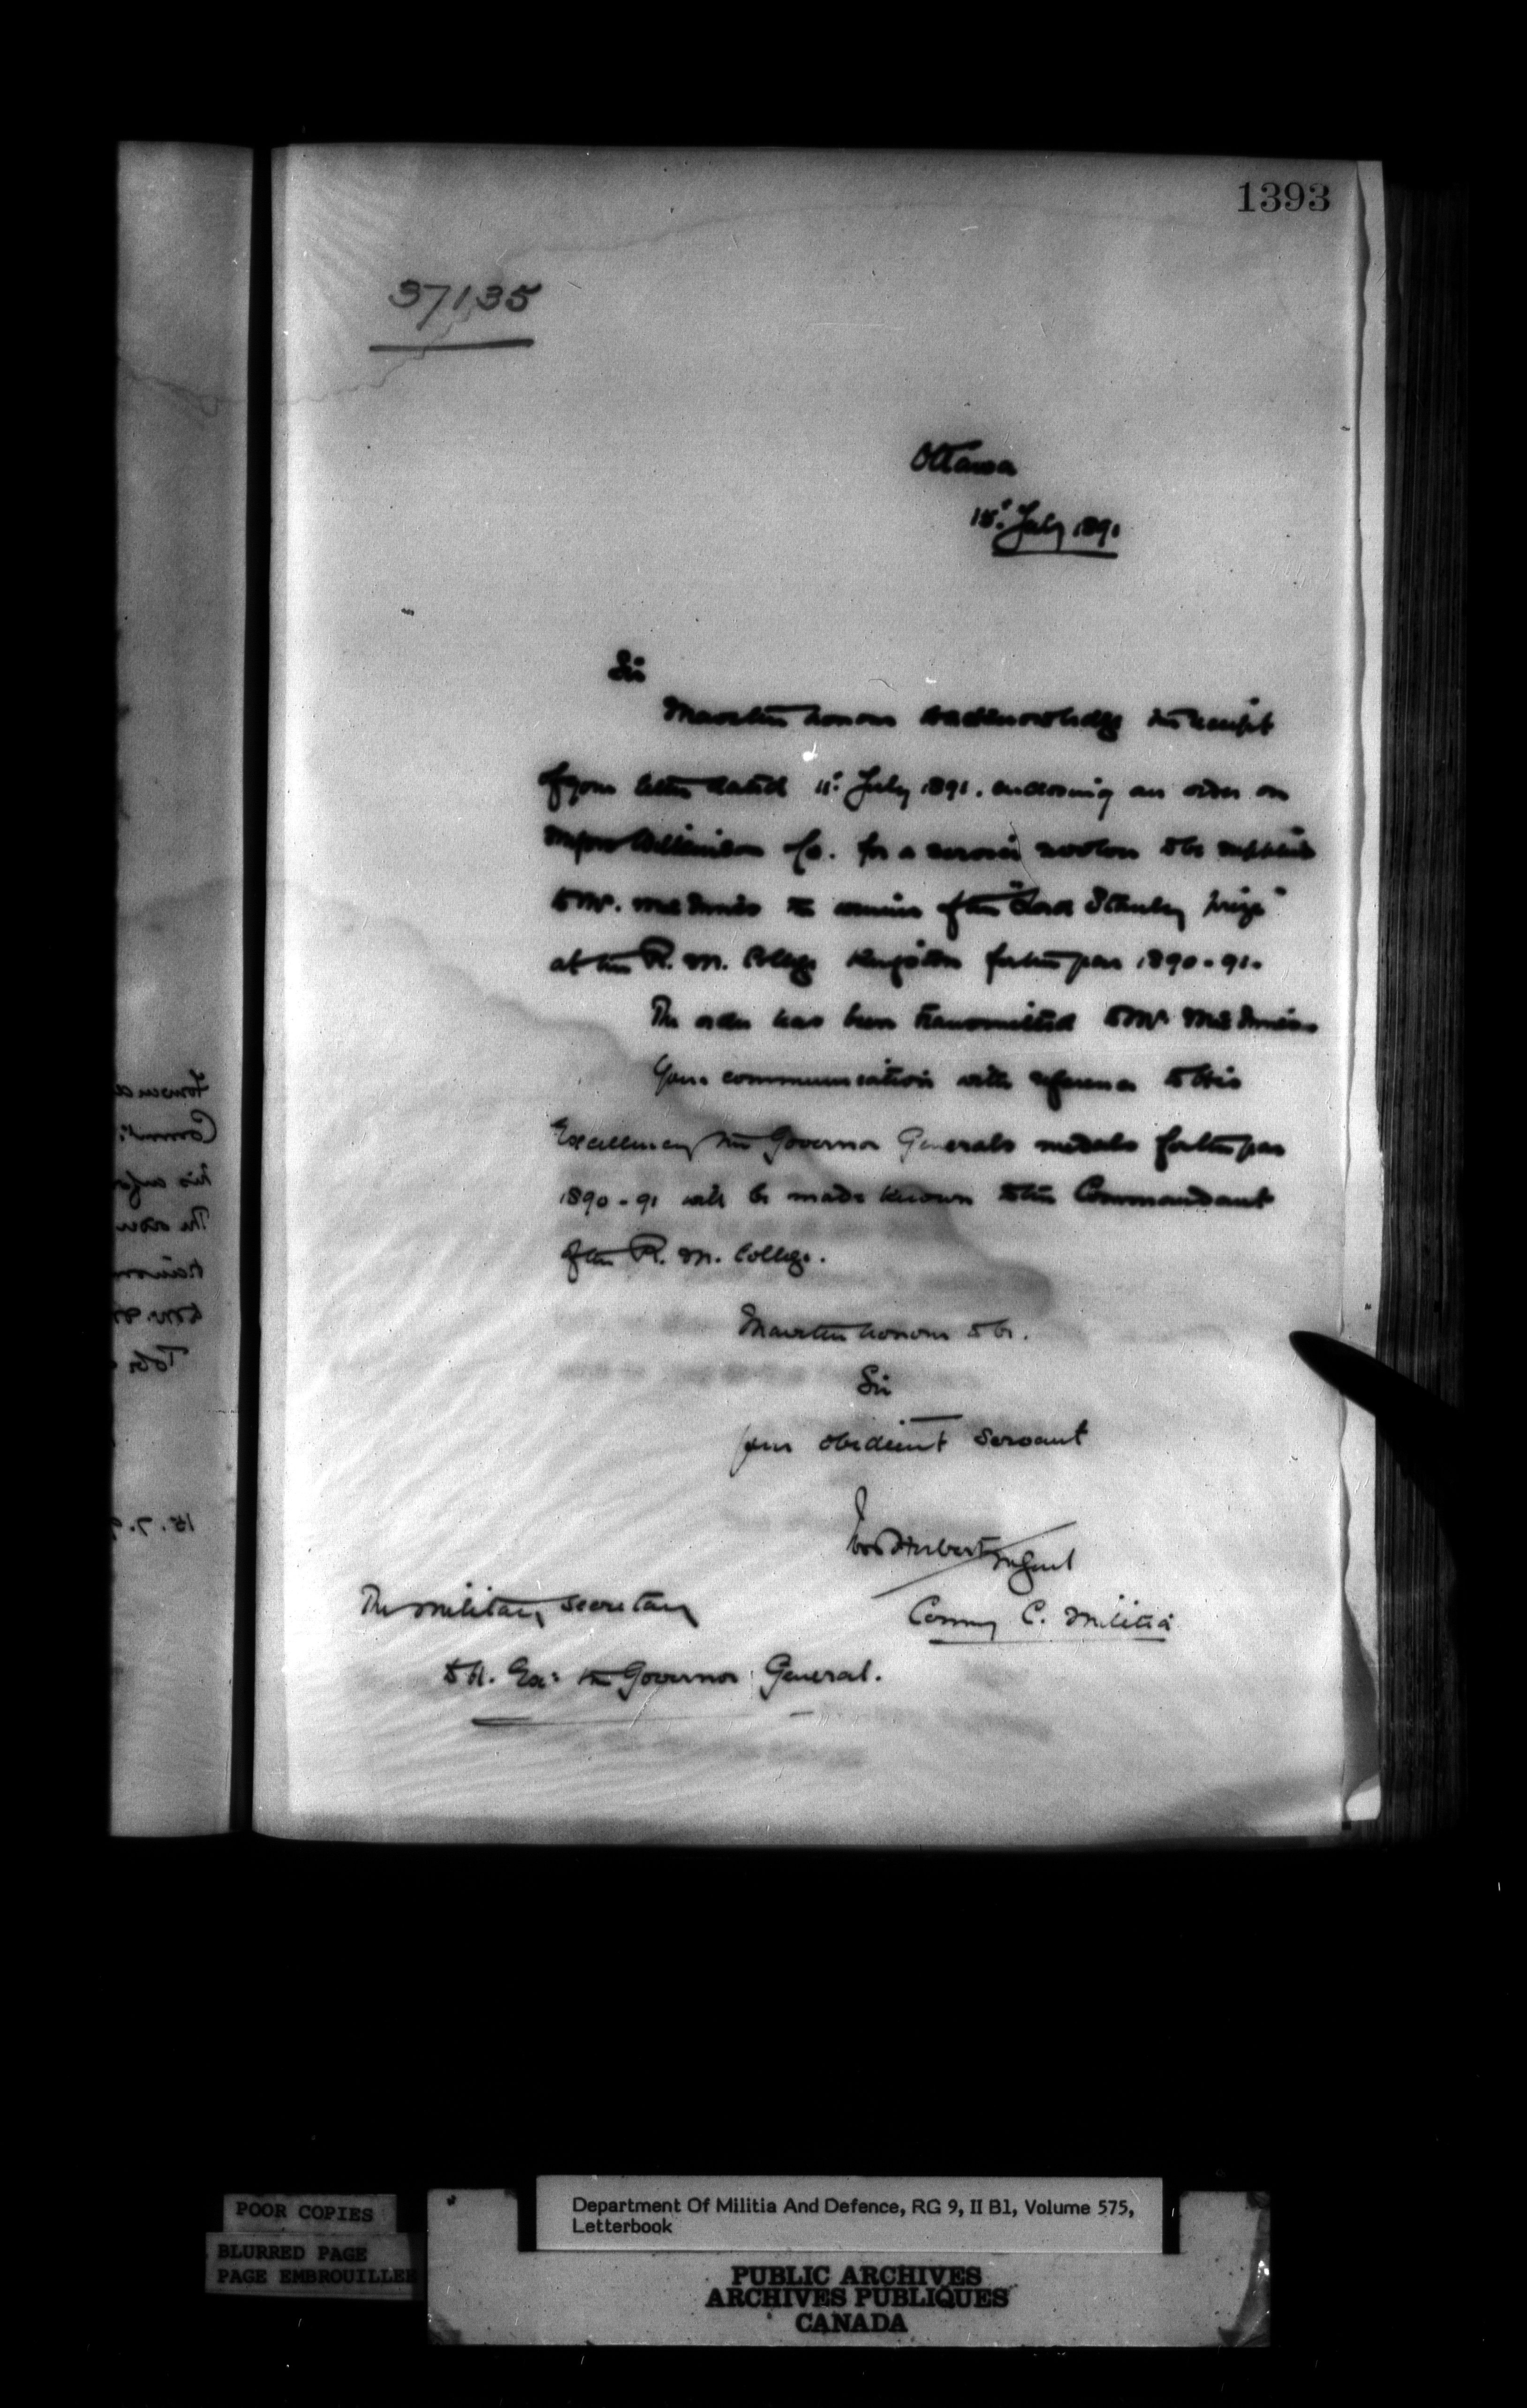 1393
37135
Ottawa
15: July 1891
Sir
I have the honour to acknowledge the receipt
of your letter dated 11: July 1891. enclosing an order on
Messrs Wilkinson & Co. for a service to be supplied
to Mr. McInnes the winner of the "Lord Stanley prize"
at the R. M. College Kingston for the year 1890-91.
The order has been transmitted to Mr McInnes
Your communication with reference to His
Excellency the Governor Generals medals for the year
1890-91 will be made known to the Commandant
of the R. M. College.
I have the honour to be.
Sir
your obedient Servant
Ivor Herbert M Genl
The Military Secretary
Commg C. Militia
to H. Ex: the Governor General.
15.7.9
POOR COPIES
BLURRED PAGE
PAGE EMBROUILLEE
Department Of Militia And Defence, RG 9, II B1, Volume 575,
Letterbook
PUBLIC ARCHIVES
ARCHIVES PUBLIQUES
CANADA